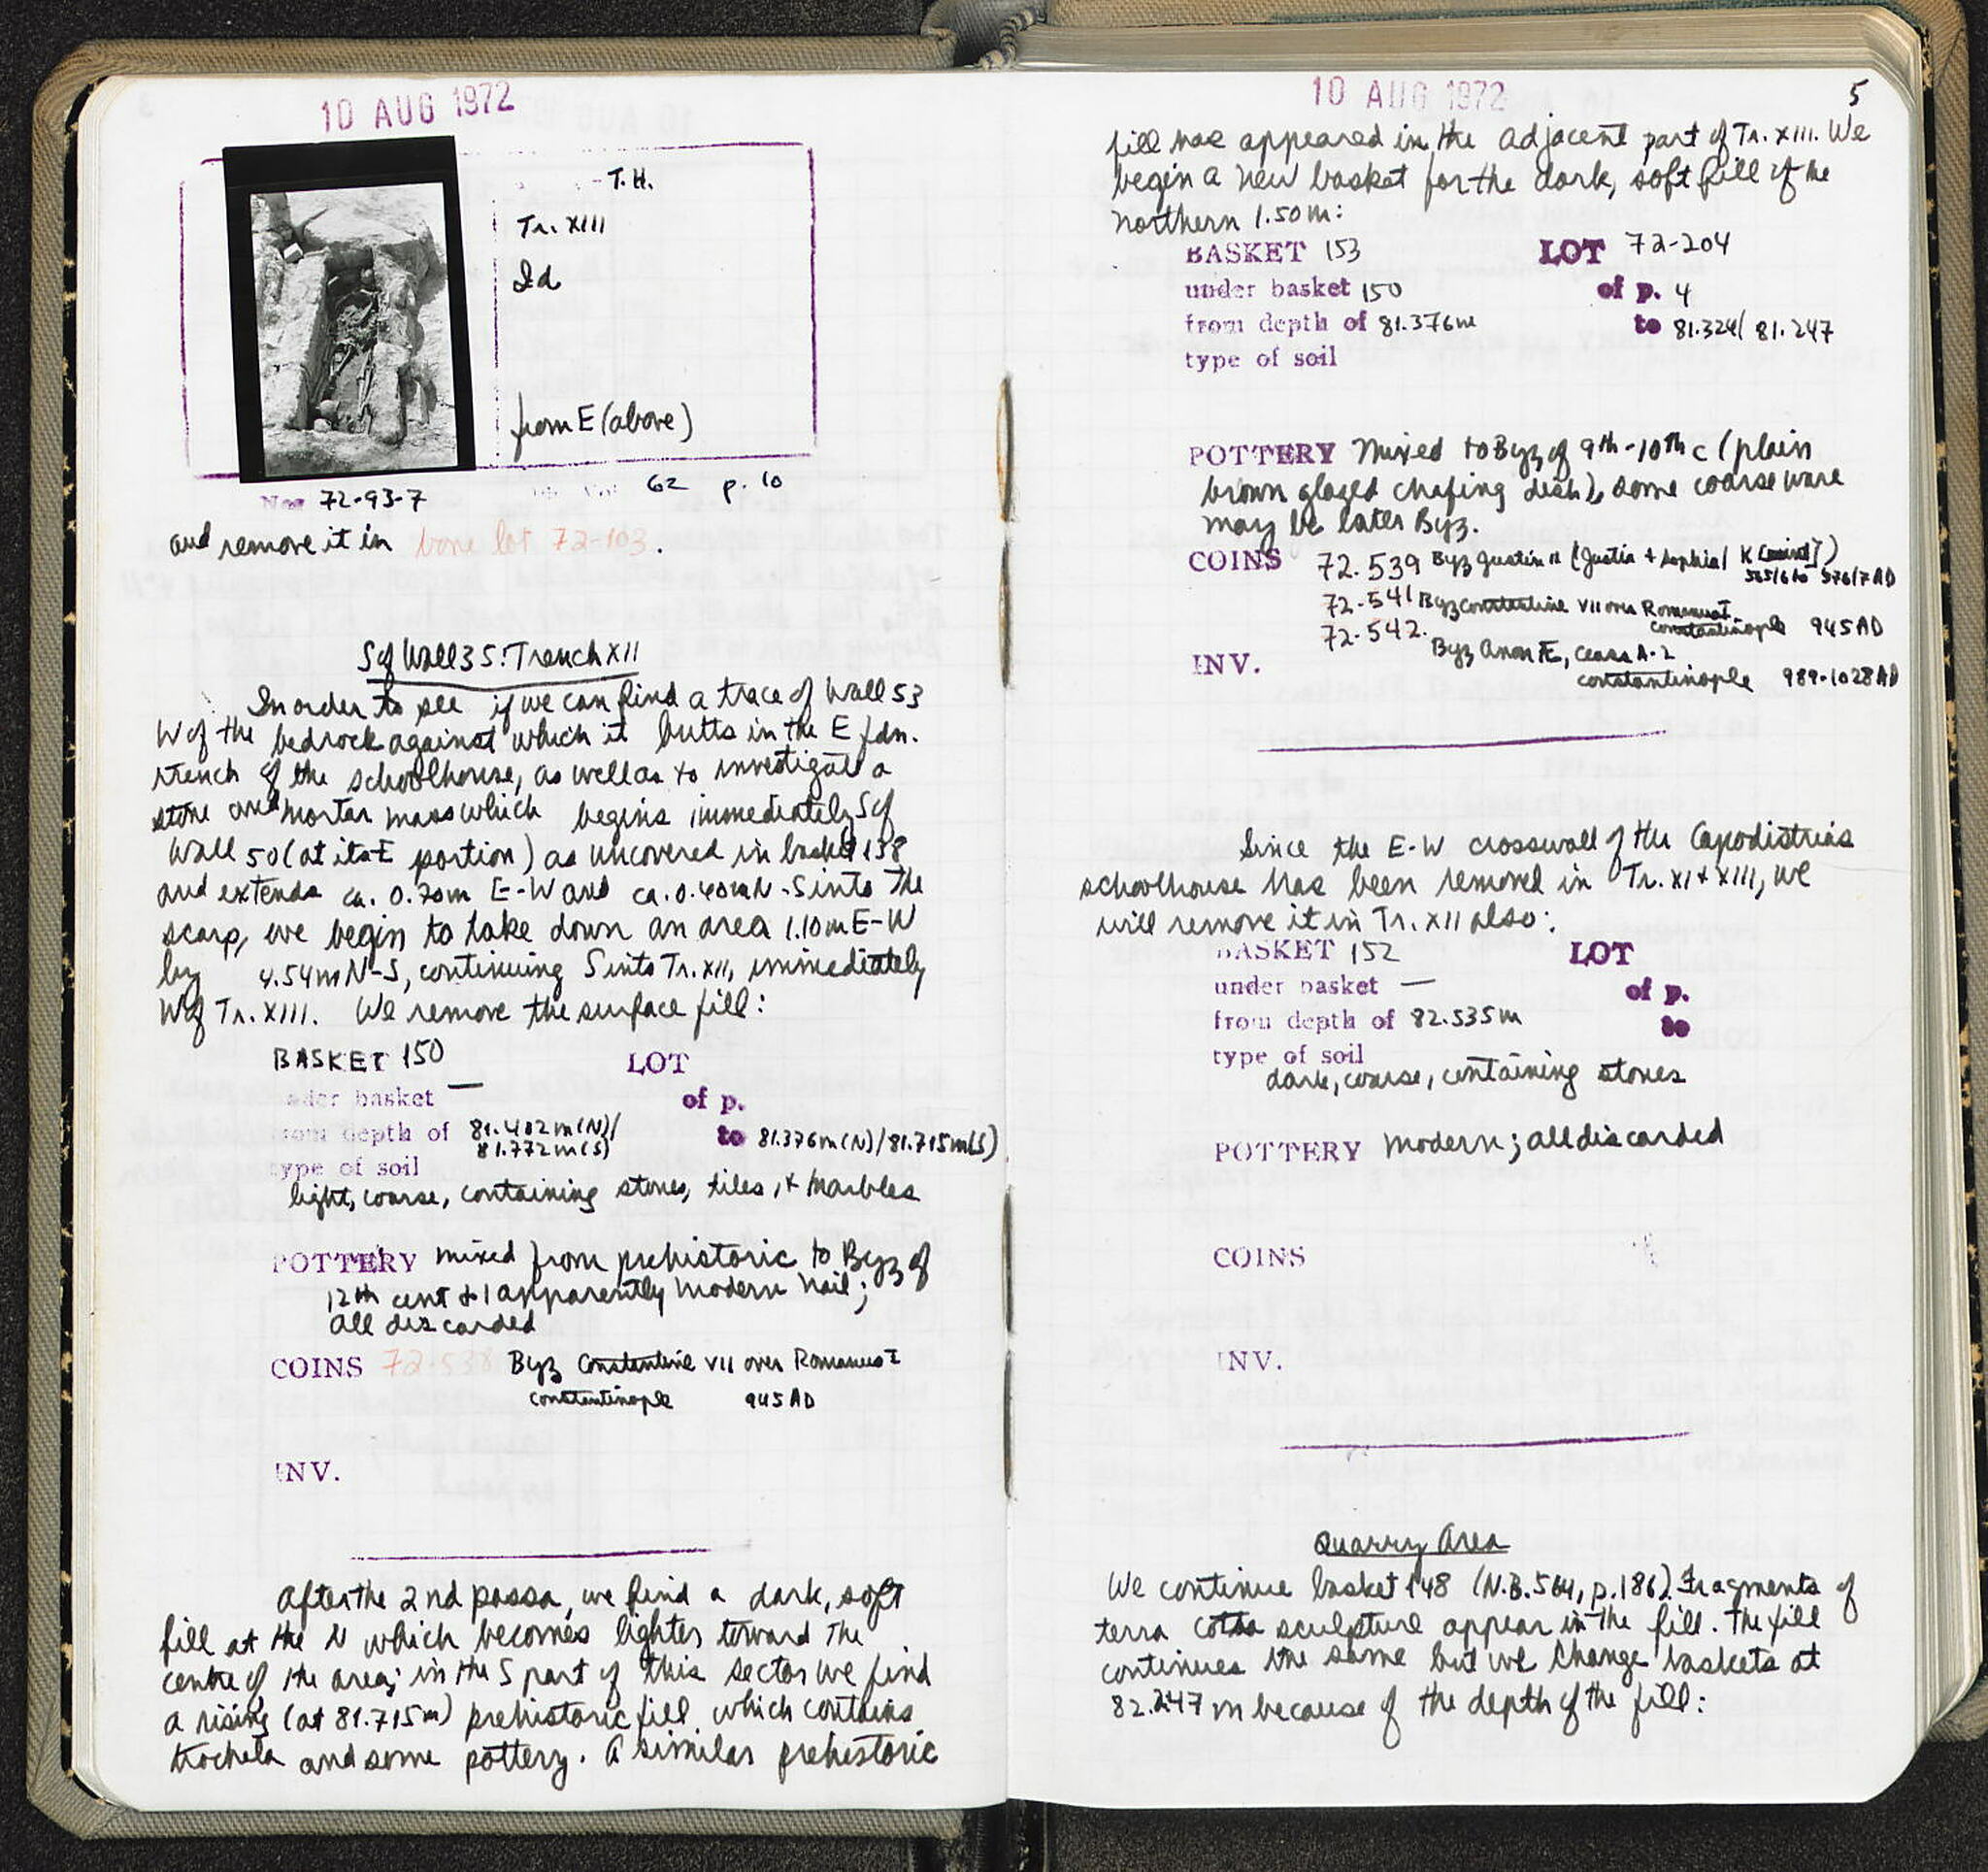 10 AUG 1972
T.H.
Tr. XIII
Id
from E (above)
Neg 72-93-7
62 p. 10
and remove it in bone lot 72-103.
S of Wall 35: Trench XII
In order to see if we can find a trace of Wall 53
W of the bedrock against which it butts in the E fdn.
trench of the schoolhouse, as well as to investigate a
stone and mortar mass which begins immediately S of
Wall 50 (at its E portion) as uncovered in basket 138
and extends ca. 0.70m E-W and ca. 0.40m N-S into the
scarp, we begin to take down an area 1.10m E-W
by 4.54m N-S, continuing S into Tr. XII, immediately
W of Tr. XIII. We remove the surface fill:
BASKET 150 LOT
under basket — of p.
from depth of 81.402m(N)/ to 81.376m(N)/81.715m(S)
81.772m(S)
type of soil
light, coarse, containing stones, tiles, + marbles
POTTERY mixed from prehistoric to Byz of
12th cent & 1 apparently modern nail;
all discarded
COINS 72-538 Byz Constantine VII over Romanus I
Constantinople 945 AD
INV.
After the 2nd passa, we find a dark, soft
fill at the N which becomes lighter toward the
centre of the area; in the S part of this sector we find
a rising (at 81.715m) prehistoric fill which contains
trochela and some pottery. A similar prehistoric
10 AUG 1972
5
fill has appeared in the adjacent part of Tr. XIII. We
begin a new basket for the dark, soft fill of the
northern 1.50m:
BASKET 153 LOT 72-204
under basket 150 of p. 4
from depth of 81.376m to 81.324/81.247
type of soil
POTTERY Mixed to Byz of 9th-10th c (plain
brown glazed chafing dish), some coarse ware
may be later Byz.
COINS 72-539 Byz Justin II (Justin + Sophia) K [mint])
565/6 to 576/7 AD
72-541 Byz Constantine VII over Romanus I
Constantinople 945 AD
72-542.
Byz Anon Æ, Class A-2
INV.
Constantinople 989-1028 AD
Since the E-W crosswall of the Capodistrias
schoolhouse has been removed in Tr. XI + XIII, we
will remove it in Tr. XII also:
BASKET 152 LOT
under basket — of p.
from depth of 82.535m to
type of soil
dark, coarse, containing stones
POTTERY Modern; all discarded
COINS
INV.
Quarry Area
We continue basket 148 (N.B. 564, p.186). Fragments of
terra cotta sculpture appear in the fill. The fill
continues the same but we change baskets at
82.247 m because of the depth of the fill: